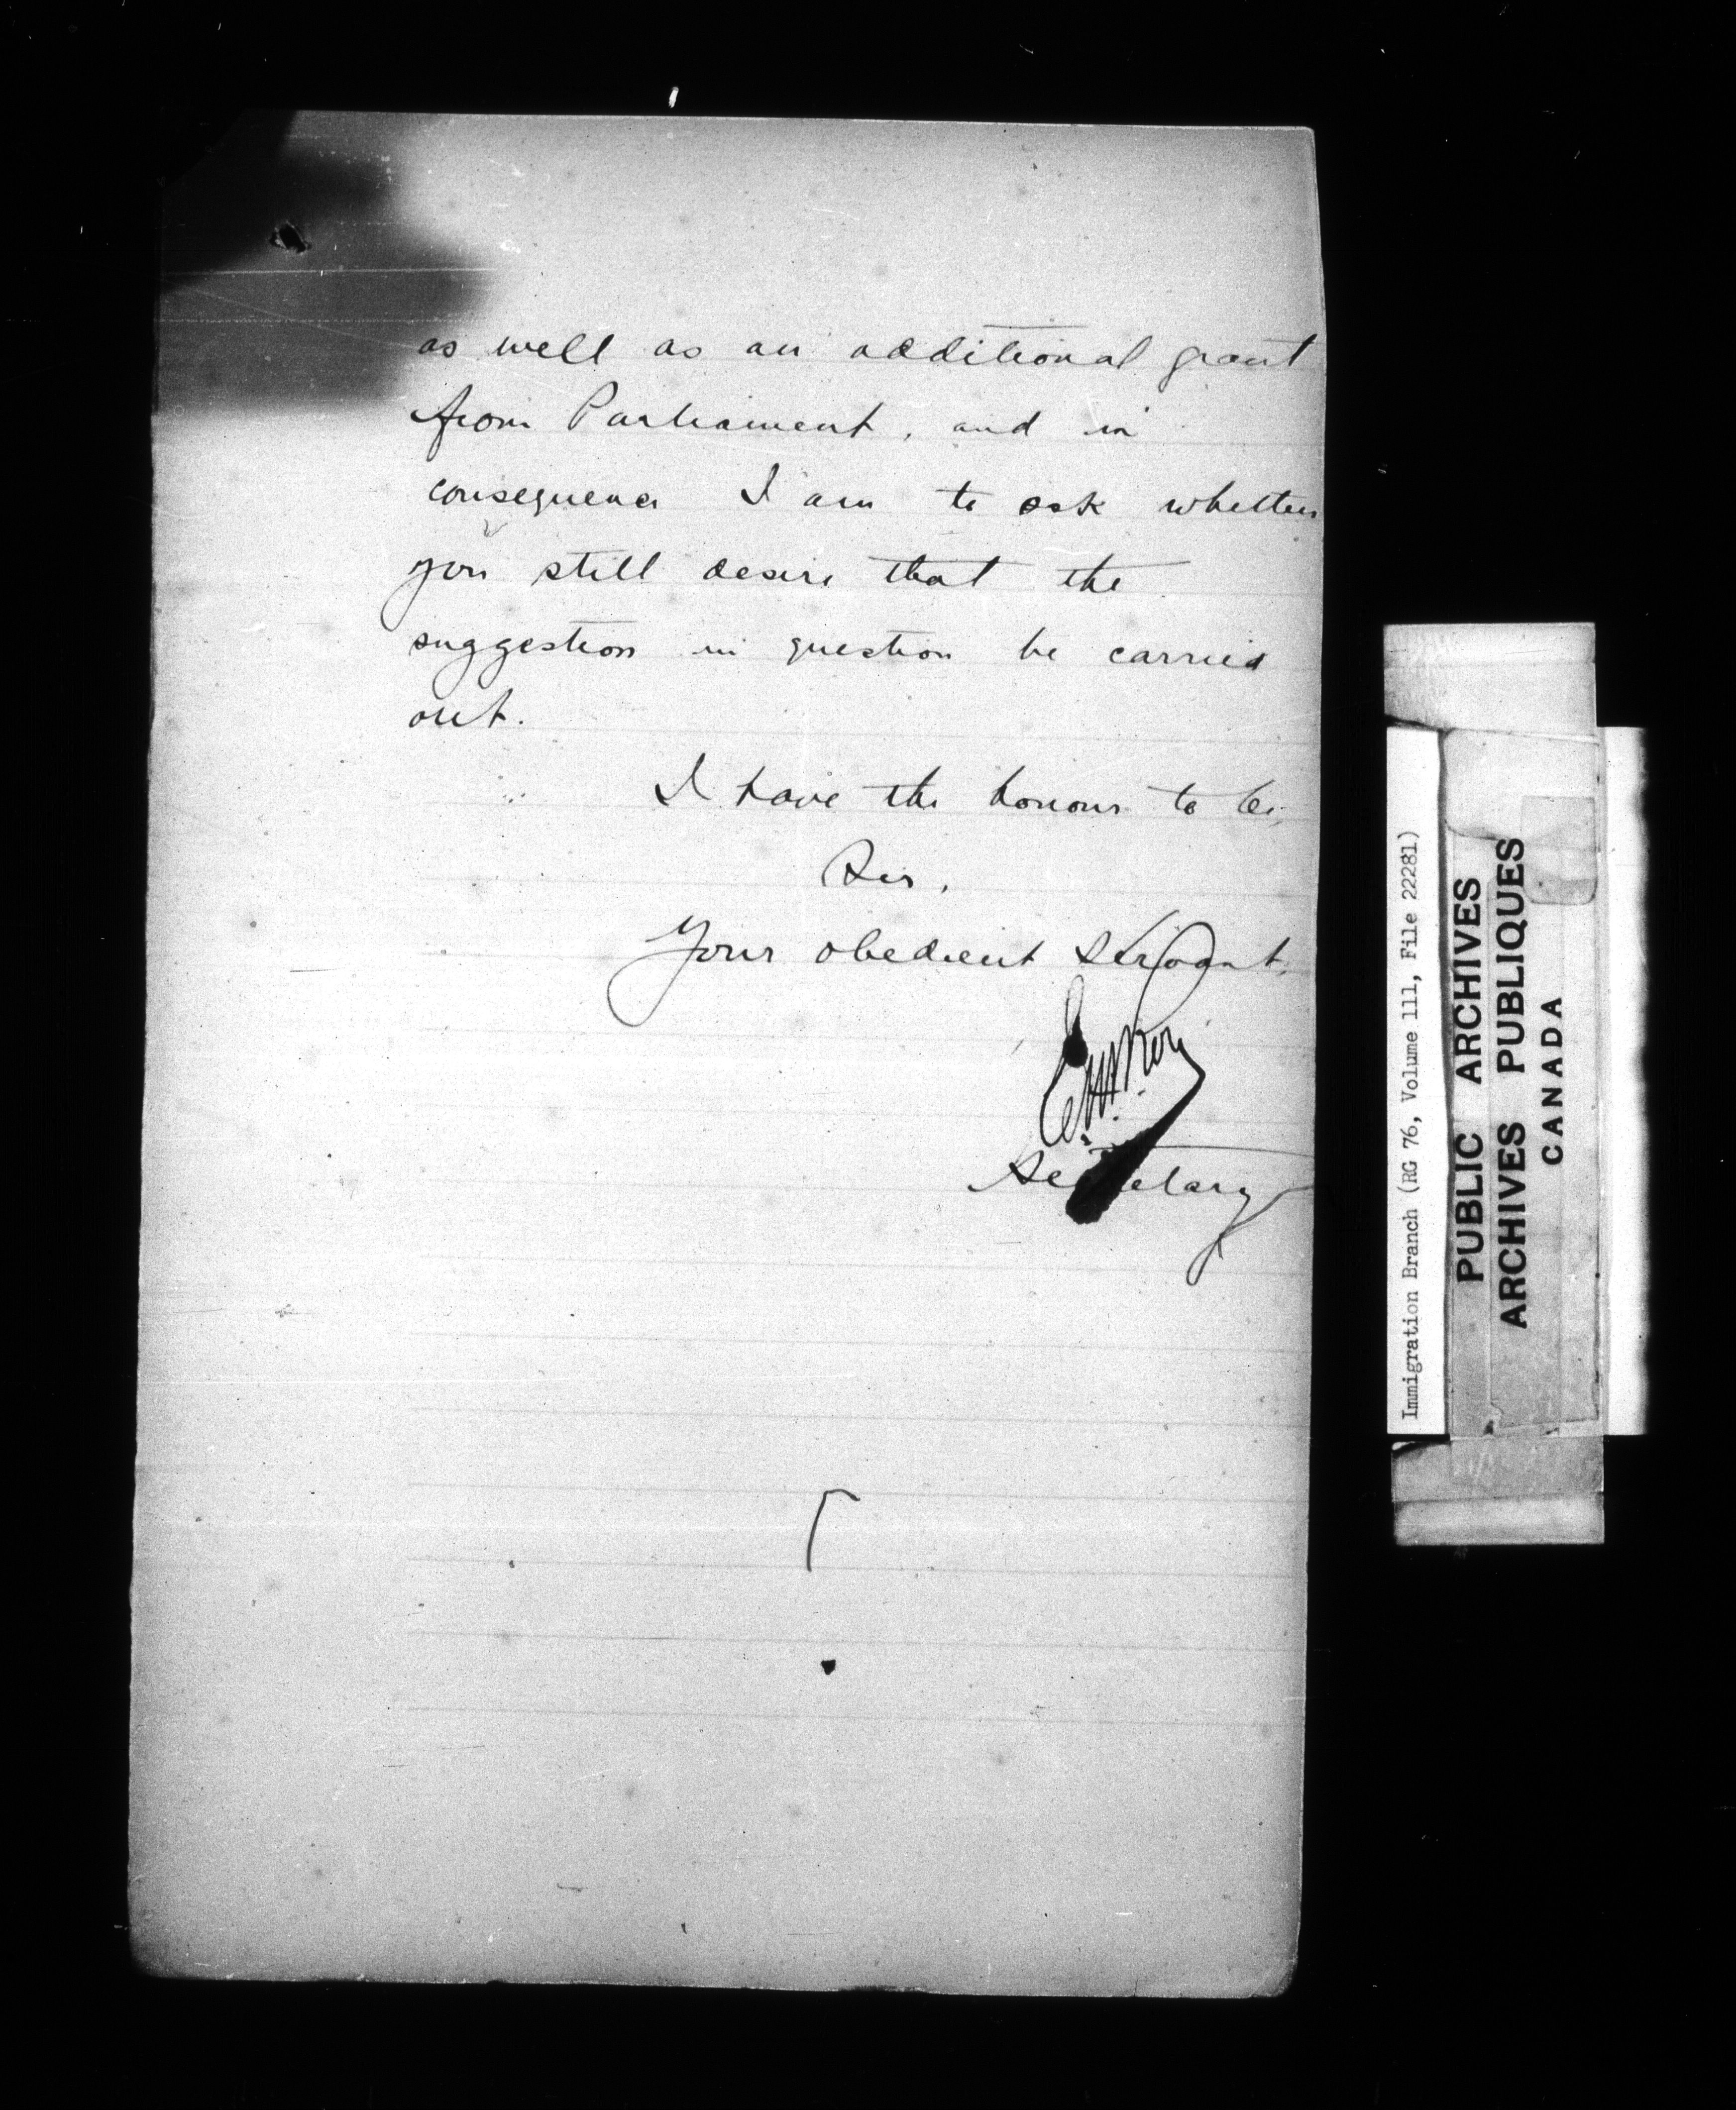 as well as an additional grant
from Parliament, and in
consequence I am to ask whether
you still desire that the
suggestion in question be carried
out.
I have the honour to be,
Sir,
Your obedient servant,
Secretary
Immigration Branch (RG 76, Volume 111, File 22281)
PUBLIC ARCHIVES
ARCHIVES PUBLIQUES
CANADA